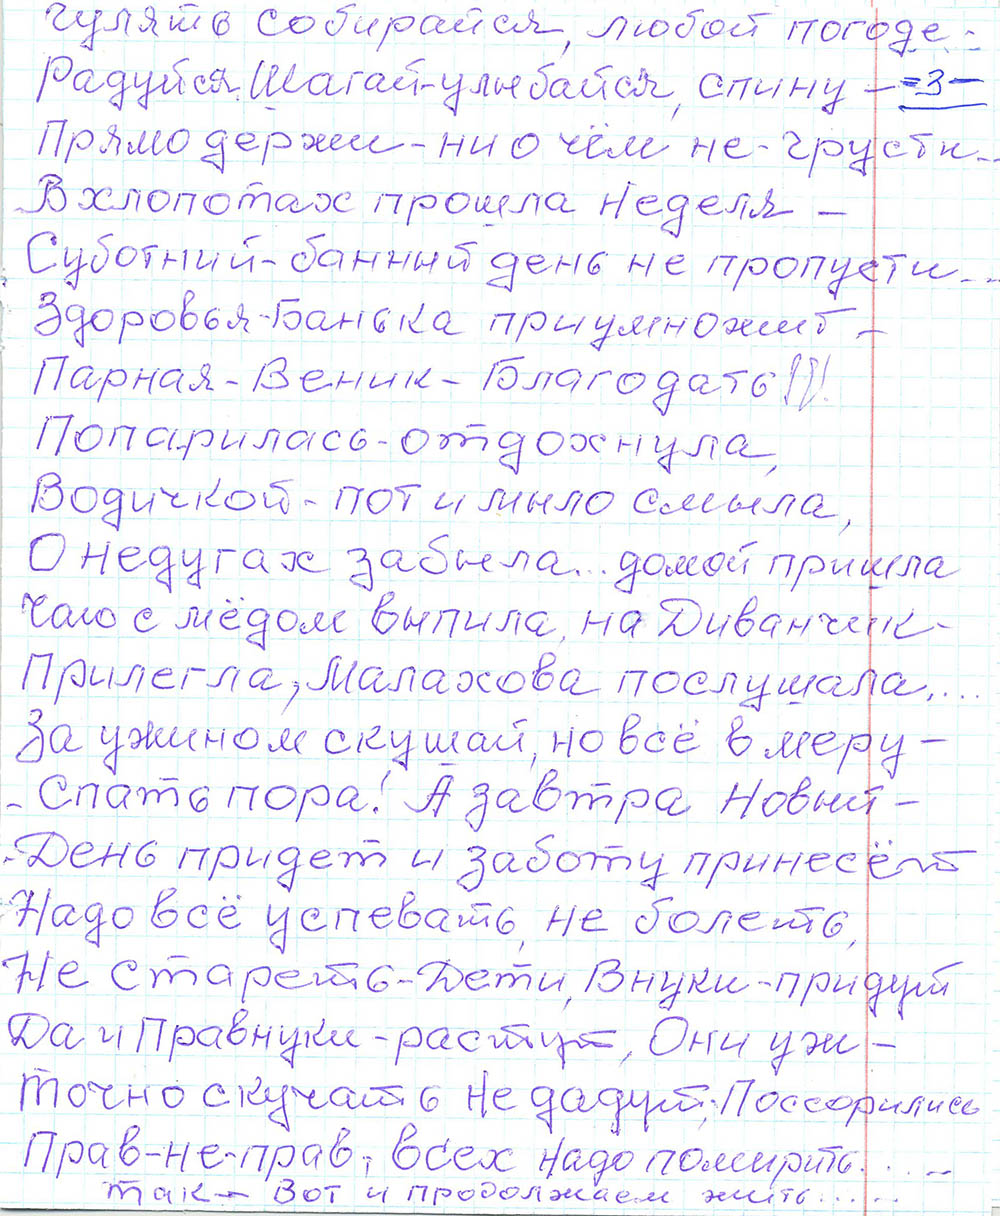 гулять собирайся, любой погоде -
Радуйся, Шагай-улыбайся, спину - =3-
Прямо держи - ни о чём не-грусти...
В хлопотах прошла неделя -
Суботний-банный день не пропусти...
Здоровья-Банька приумножит -
Парная-Веник-Благодать!!!
Попарилась-отдохнула,
Водичкой-пот и мыло смыла,
О недугах забыла... домой пришла
Чаю с мёдом выпила, на Диванчик-
Прилегла, Малахова послушала,...
За ужином скушай, но всё в меру -
- Спать пора! А завтра Новый -
- День придет и заботу принесёт
Надо всё успевать, не болеть,
Не стареть-Дети, Внуки-придут
Да и Правнуки-растут, Они уж -
Точно скучать не дадут, Поссорились
Прав-не-прав, всех надо помирить.... -
Так - Вот и продолжаем жить.....